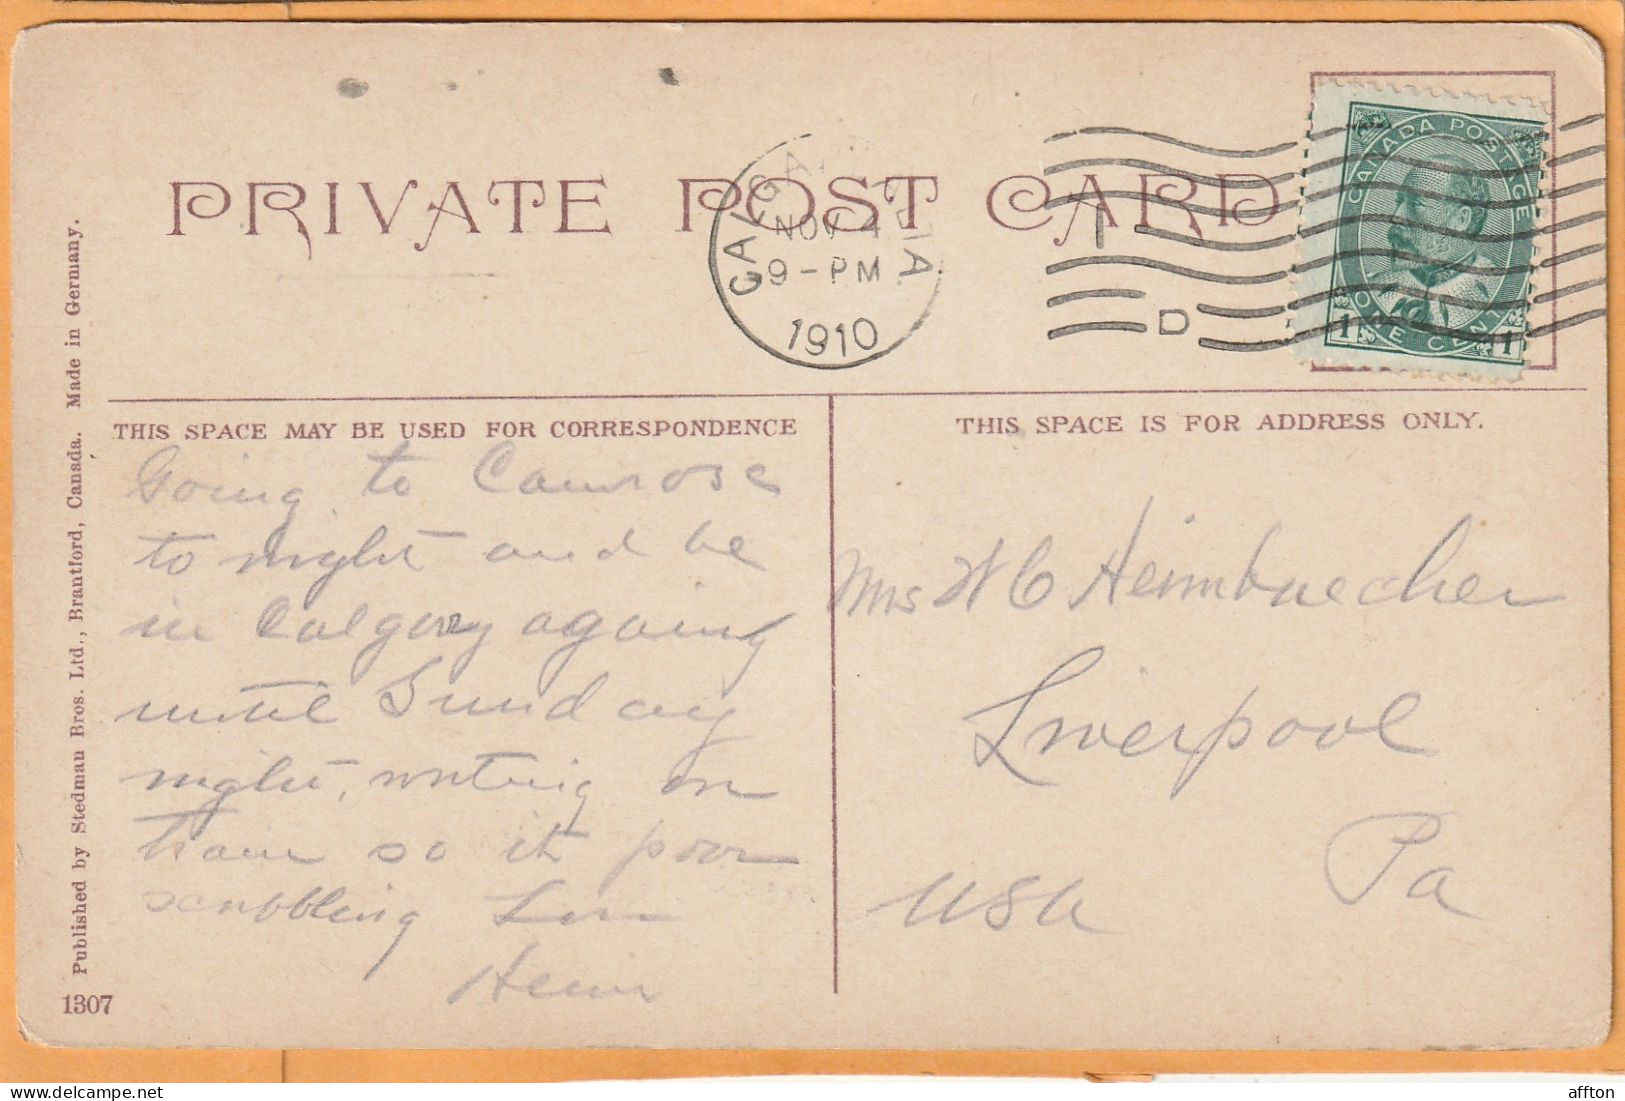 PRIVATE POST CARD
CALGARY ALTA.
NOV 4
9-PM
1910
I
D
CANADA POSTAGE
1 ONE CENT 1
THIS SPACE MAY BE USED FOR CORRESPONDENCE
Going to Camrose
to night and be
in Calgary again
until Sunday
night, writing on
train so it poor
scribbling
THIS SPACE IS FOR ADDRESS ONLY.
Mrs W C Heimbuecher
Liverpool
Pa
USA
Published by Stedman Bros. Ltd., Brantford, Canada. Made in Germany.
1307
affton